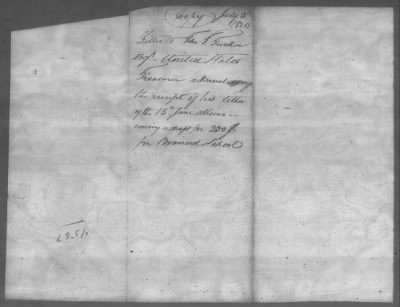 Copy July 
1820
Letter to Tho. T. Tucker
Esqr. United States
Treasurer acknowledging
the receipt of his letter
of the 15th June
a draft for 200 $
for Brainerd School